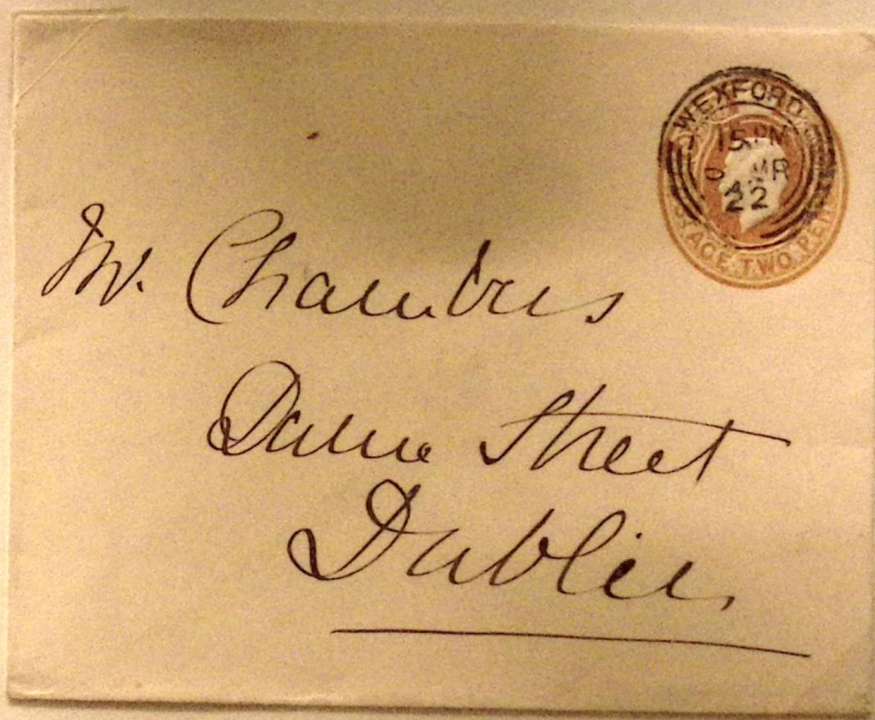 WEXFORD
15 PM
MR
22
POSTAGE TWO PENCE
Mr. Chambers
Dame Street
Dublin